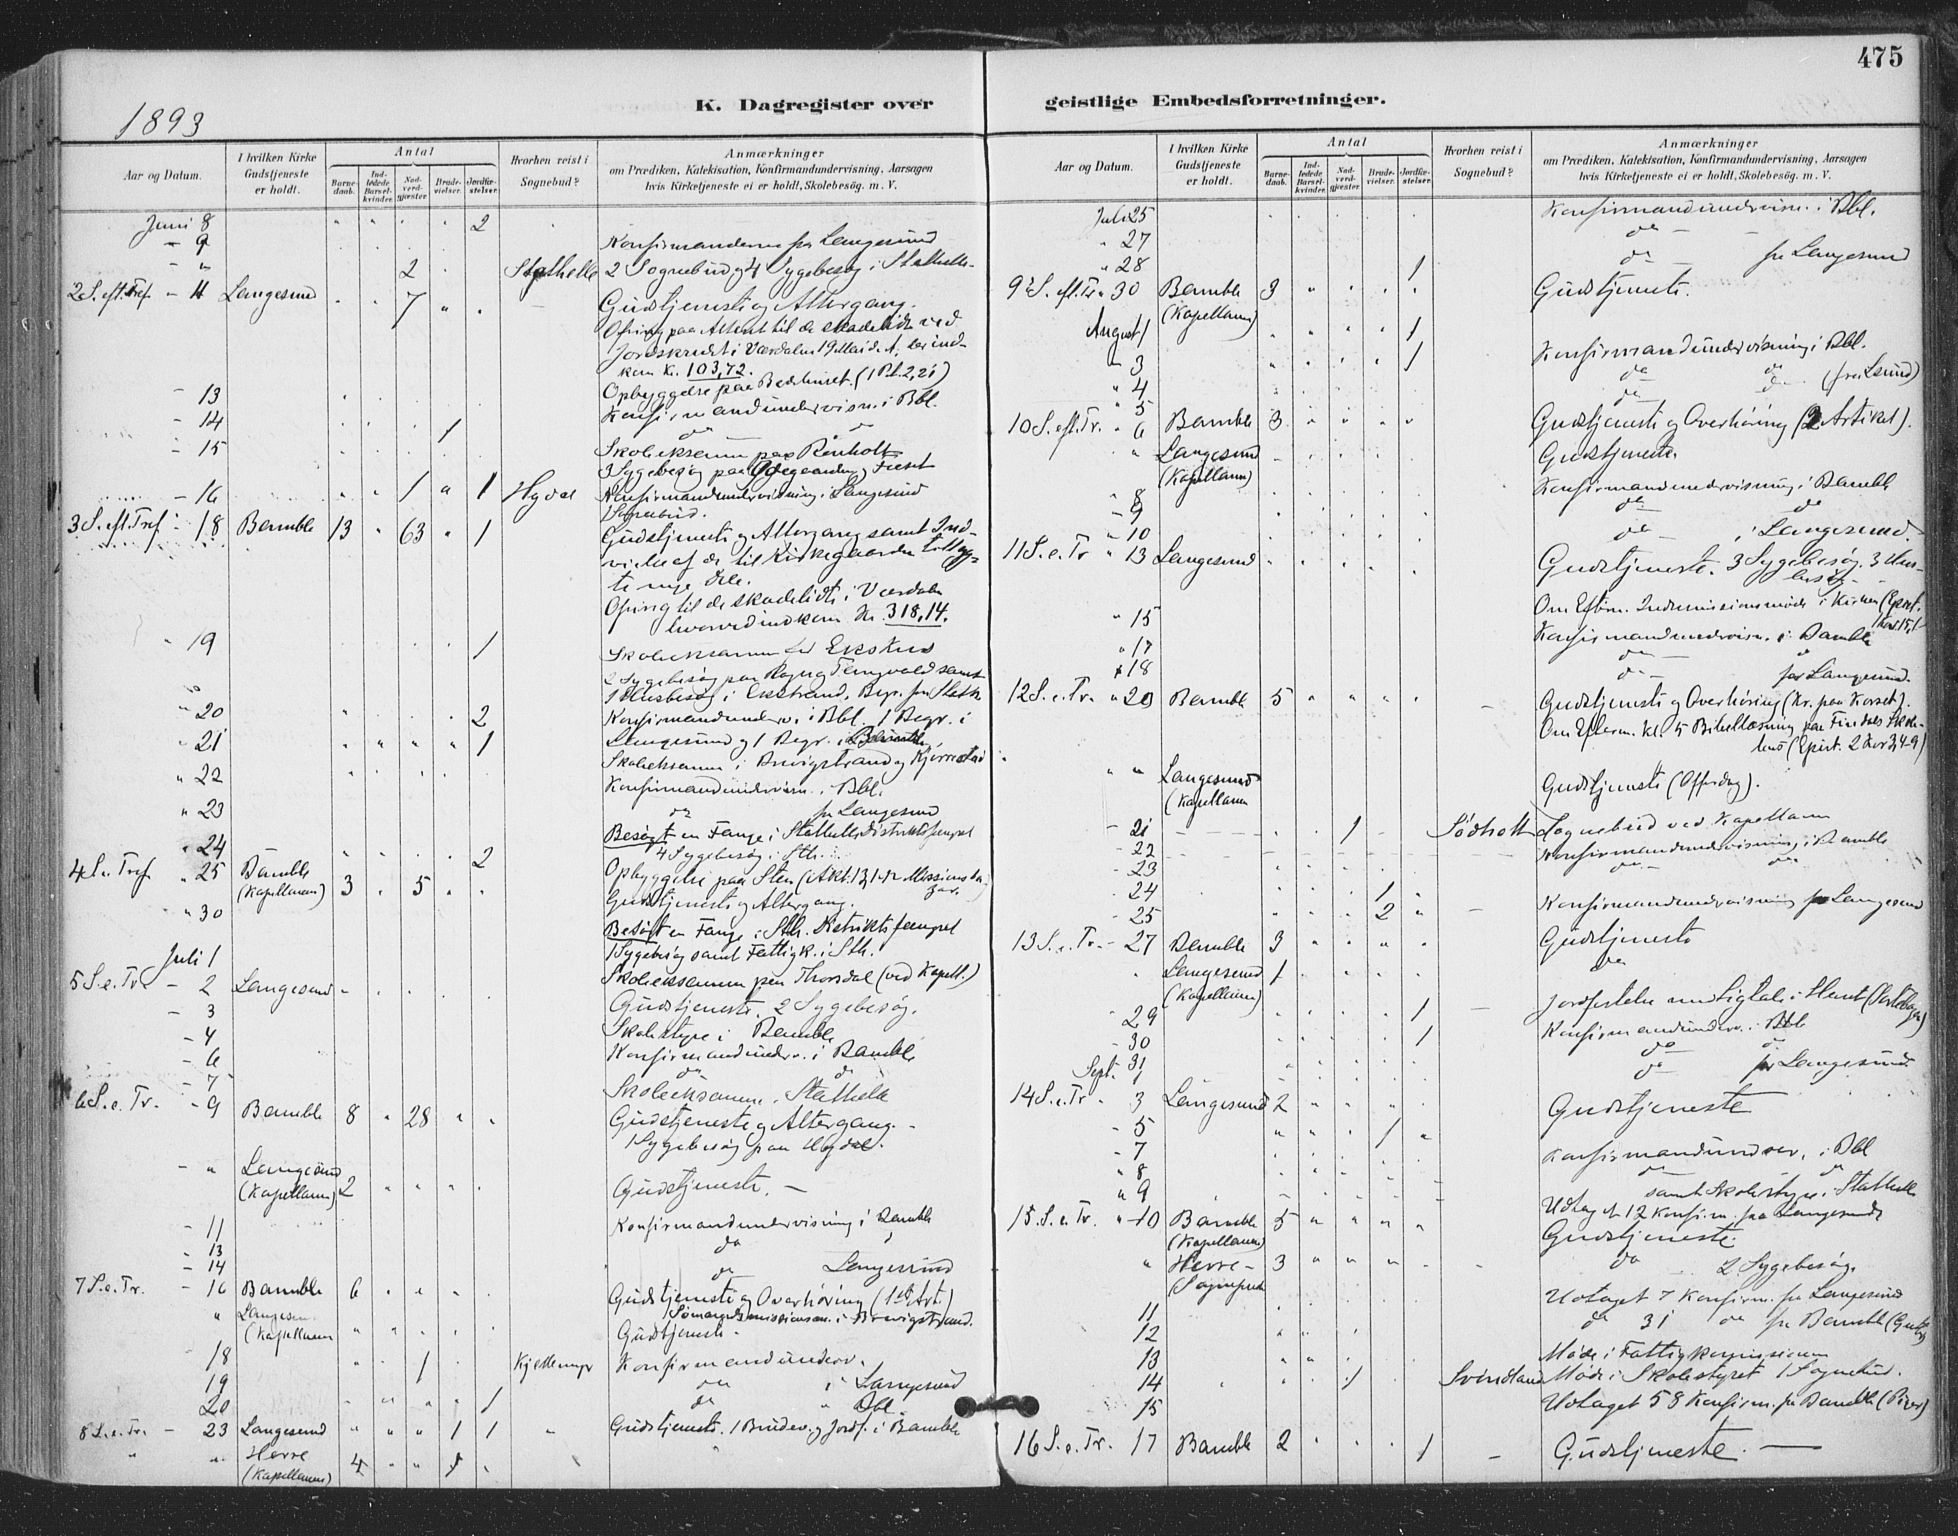 475
K. Dagregister over
geistlige Embedsforretninger.
1893
Aar og Datum.
I hvilken Kirke Gudstjeneste er holdt.
Antal
Barnedaab.
Indledede Barselkvinder.
Nadverdgjester
Brudevielser.
Jordfæstelser
Hvorhen reist i Sognebud?
Anmærkninger
om Prædiken, Katekisation, Konfirmandundervisning, Aarsagen
hvis Kirketjeneste ei er holdt, Skolebesög. m. V.
Juni 8 " " " " 2
- 9 Konfirmanderne fra Langesund
- " 2 Stathelle 2 Sognebud og 4 Sygebesøg i Stathelle
2 S. eft. Tref. - 11 Langesund " " 7 " " Gudstjeneste og Altergang.
Ofring paa Alteret til de skadelidte ved
Jordskredet i Værdalen 19 Mai d. A., der ind-
kom Kr. 103,72.
- 13 Opbyggelse paa Bedehuset. (1 Pet. 2, 21)
- 14 Konfirmandundervisn. i Bbl.
- 15 1 do do
Skoleeksamen paa Rönholt
3 Sygebesøg paa
- 16 " " 1 " 1 Hydal Konfirmandundervisning i Langesund
1 Sognebud.
3 S. eft. Tref. - 18 Bamble 13 " 63 " 1 Gudstjeneste og Altergang samt Ind-
vielse af de til Kirkegaarden tillag-
te nye Dele.
Ofring til de skadelidte i Værdalen
hvorved indkom Kr. 318,14.
" 19 1 Skoleeksamen
2 Sygebesøg paa samt
1 Husbesøg i Ekstrand, Begr. fra Stath.
" 20 2 Konfirmandunderv. i Bbl. 1 Begr. i
" 21 " " " " 1 Langesund og 1 Begr. i Bamble.
Skoleeksamen i
" 22 Konfirmandundervisn. i Bbl.
" 23 do fra Langesund
Besøgt en Fange i Stathelle Distriktsfængsel
" 24 2 4 Sygebesøg i Sth.
4 S. e. Tref. " 25 Bamble (Kapellanen) 3 " 5 " " Opbyggelse paa Sten
Gudstjeneste og Altergang.
" 30 Besøgt en Fange i Sth. Distriktsfængsel
1 Sygebesøg samt Fattigk. i Sth.
Juli 1 Skoleeksamen paa Thorsdal (ved Kapell.)
5 S. e. Tr. - 2 Langesund Gudstjeneste. 2 Sygebesøg.
- 3 Skolestyre i Bamble
- 4 Konfirmandunderv. i Bamble
- 6 do do
- 7 Skoleeksamen i Stathelle
6 S. e. Tr. - 9 Bamble 8 " 28 " " Gudstjeneste og Altergang. -
1 Sygebesøg paa Hydal.
- " Langesund (Kapellanen) 2 " " " " Gudstjeneste. -
- 11 Konfirmandundervisning i Bamble
- 13 do
- 14 do Langesund
7 S. e. Tr. - 16 Bamble 6 " " " Gudstjeneste og Overhøring (1ste Art.)
" Langesun. (Kapellanen " " " " " Gudstjeneste.
- 18 " " 1 " Kjellemyr Konfirmandunderv.
- 19 do i Langesund
- 20 " " " " 1 do " Bbl.
8 S. e. Tr. - 23 Langesund " " " 1 1 " Gudstjeneste. 1 Brudev. og Jordf. i Bamble
" " Herre (Kapellanen) 4 " " 1 "
Aar og Datum.
I hvilken Kirke Gudstjeneste er holdt.
Antal
Barnedaab.
Indledede Barselkvinder.
Nadverdgjester
Brudevielser.
Jordfæstelser
Hvorhen reist i Sognebud?
Anmærkninger
om Prædiken, Katekisation, Konfirmandundervisning, Aarsagen
hvis Kirketjeneste ei er holdt, Skolebesög. m. V.
Juli 25 Konfirmandundervisn. i Bbl.
" 27 do
" 28 1 do fra Langesund
9de S. eft. Tr. " 30 Bamble (Kapellanen) 3 " " " " Gudstjeneste.
August 1 " " " " 1
- 3 " " " " 1 Konfirmandundervisning i Bbl.
" 4 do do
" 5 do do (fra Lsund)
10 S. eft. Tr. " 6 Bamble 3 " " " " Gudstjeneste og Overhøring (2 Artikel).
" Langesund (Kapellanen) Gudstjeneste.
" 8 Konfirmandundervisning i Bamble
- 9 do do
" 10 do i Langesund.
11 S. e. Tr " 13 Langesund Gudstjeneste. 3 Sygebesøg. 3 Hus-
besøg -
Om Efterm. Indremissionsmøde i Kirken
" 15 Konfirmandundervisn. i Bamble
" 17 do
" 18 do fra Langesund.
12 S. e. Tr. " 20 Bamble 5 " " " " Gudstjeneste og Overhøring (Kr. paa Korset).
Om Efterm. Kl. 5 Bibellæsning paa Findals Skole-
hus (Epist. 2 Kor 3, 4-9)
" " Langesund (Kapellanen Gudstjeneste (Offerdag).
- 21 1 Södholt Sognebud ved Kapellanen
- 22 Konfirmandundervisning i Bamble
- 23 do do
- 24 1
- 25 2 " Konfirmandundervisning fra Langesund
13 S. e. Tr. - 27 Bamble 3 " " " " Gudstjeneste
" Langesund (Kapellanen) 1 do
- 29 1 Jordfæstelse med Ligtale i
- 30 1 Konfirmandunderv. i Bbl
- 31 do do
Sept. 1 do fra Langesund
14 S. e. Tr " 3 Langesund 2 Gudstjeneste
- 5 " " " 1 "
- 7 Konfirmandunderv. i Bbl
" 8 do do
" 9 samt Skolestyre i Stathelle
Udtaget 12 Konfirm. fra Langesund
15 S. e. Tr. " 10 Bamble (Kapellanen) 5 " " " " Gudstjeneste.
" Herre - (Sognepræst 3 " " " - do 2 Sygebesøg.
11 Udtaget 7 Konfirm. fra Langesund
- 12 do 31 do fra Bamble
- 13 Møde i Fattigkomissionen
- 14 1 Svindland Møde i Skolestyret 1 Sognebud.
- 15 Udtaget 58 Konfirm. fra Bamble (Piger)
16 S. e. Tr. 17 Bamble 2 " " " 1 Gudstjeneste. —